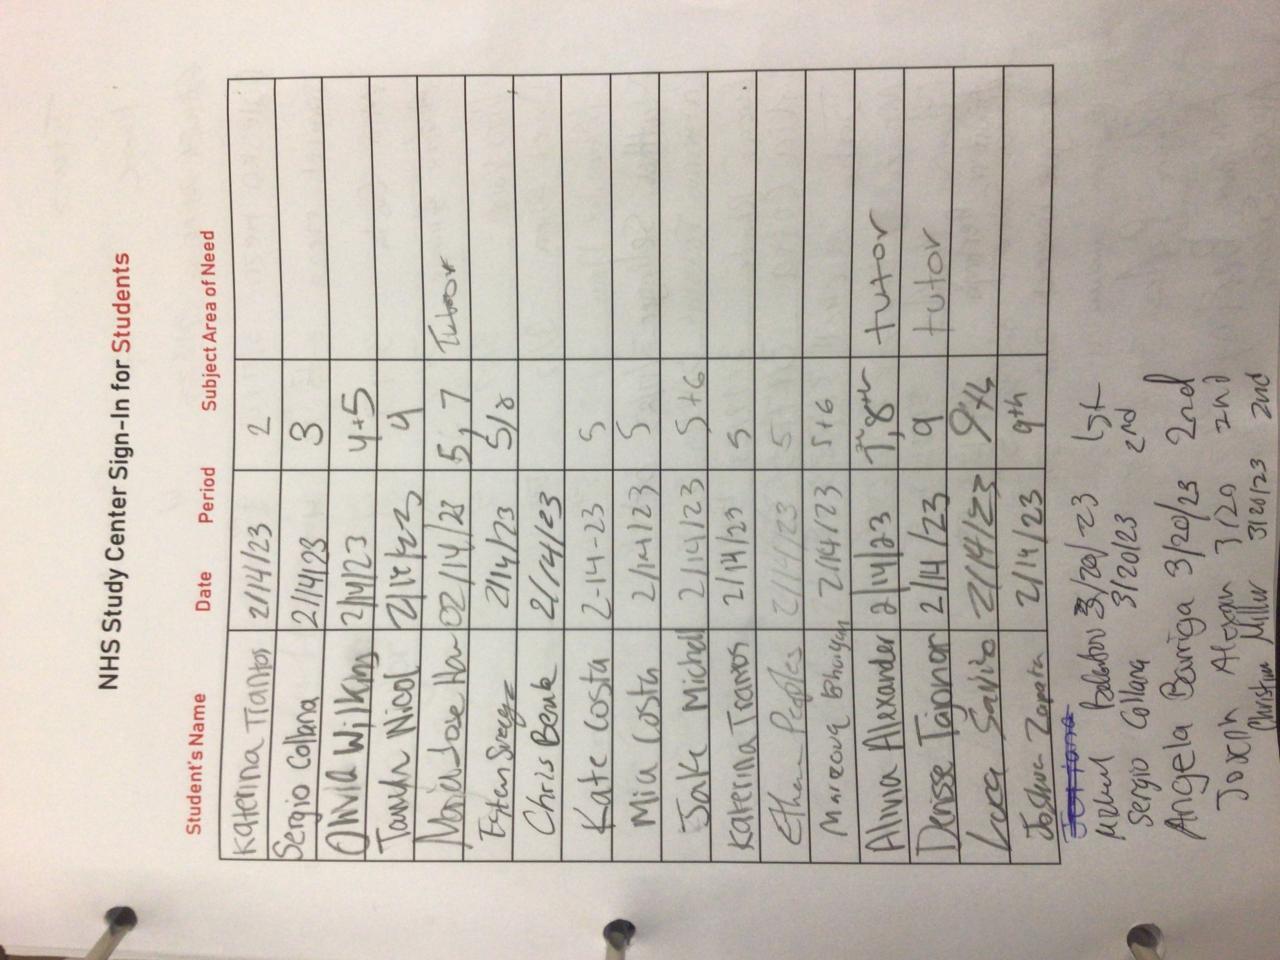 NHS Study Center Sign-In for Students
Student's Name Date Period Subject Area of Need
Katerina Tramos 2/14/23 2
Sergio Collana 2/14/23 3
Olivia Wilkins 2/14/23 4+5
Nicol 2/14/23 4
Maria Jose 02/14/23 5, 7 Tutor
2/14/23 5/8
Chris 2/14/23
Kate Costa 2-14-23 5
Mia Costa 2/14/23 5
Jake Michell 2/14/23 5+6
Katerina Tramos 2/14/23 5
Ethan Peoples 2/14/23 5
Bhuiyan 2/14/23 5+6
Alina Alexander 2/14/23 8th tutor
Denisse 2/14/23 9 tutor
Luca Savino 2/14/23 9th
Joshua Zapata 2/14/23 9th
3/20/23 1st
Sergio Collana 3/20/23 2nd
Angela Barriga 3/20/23 2nd
3/20 2nd
Christian Miller 3/20/23 2nd